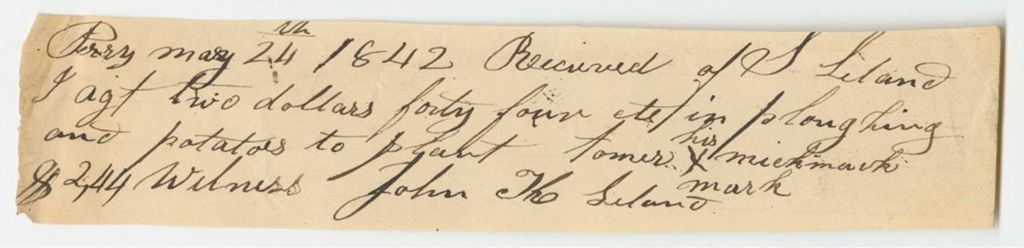 Perry may 24th 1842 Recieved of S Leland
I agt two dollars forty four cts in ploughing
and potatoes to plant tomer his X mark mickmack
$2,44 Witness John Th Leland